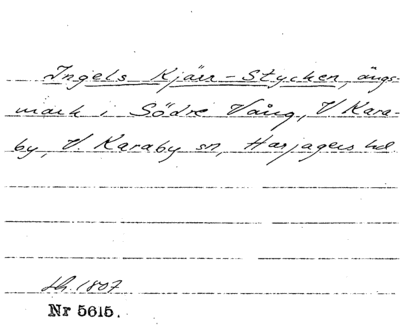 Ingels Kjärr-Stycken, ängs-
mark i Södre Vång, V Kara-
by, V. Karaby sn, Harjagers hd
sh. 1807
Nr 5615.